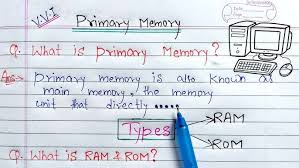 V.V.I
Primary Memory
Q. What is Primary Memory?
Ans:- Primary memory is also known as
main memory. the memory
unit that directly ......
Types
RAM
ROM
Q. What is RAM & ROM?